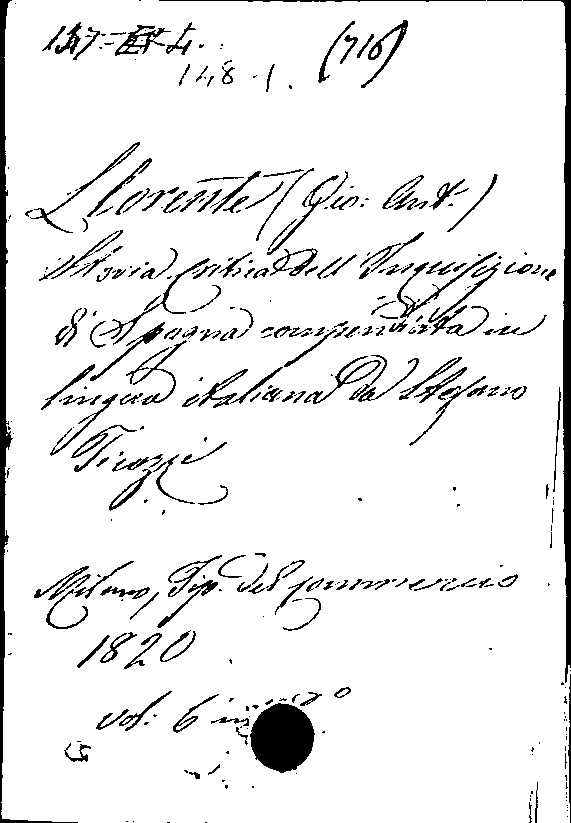 (716)
148.1.
Llorente (Gio: Ant.)
Storia critica dell'Inquisizione
di Spagna compendiata in
lingua italiana da Stefano
Ticozzi
Milano, Tip. del Commercio
1820
vol: 6 in